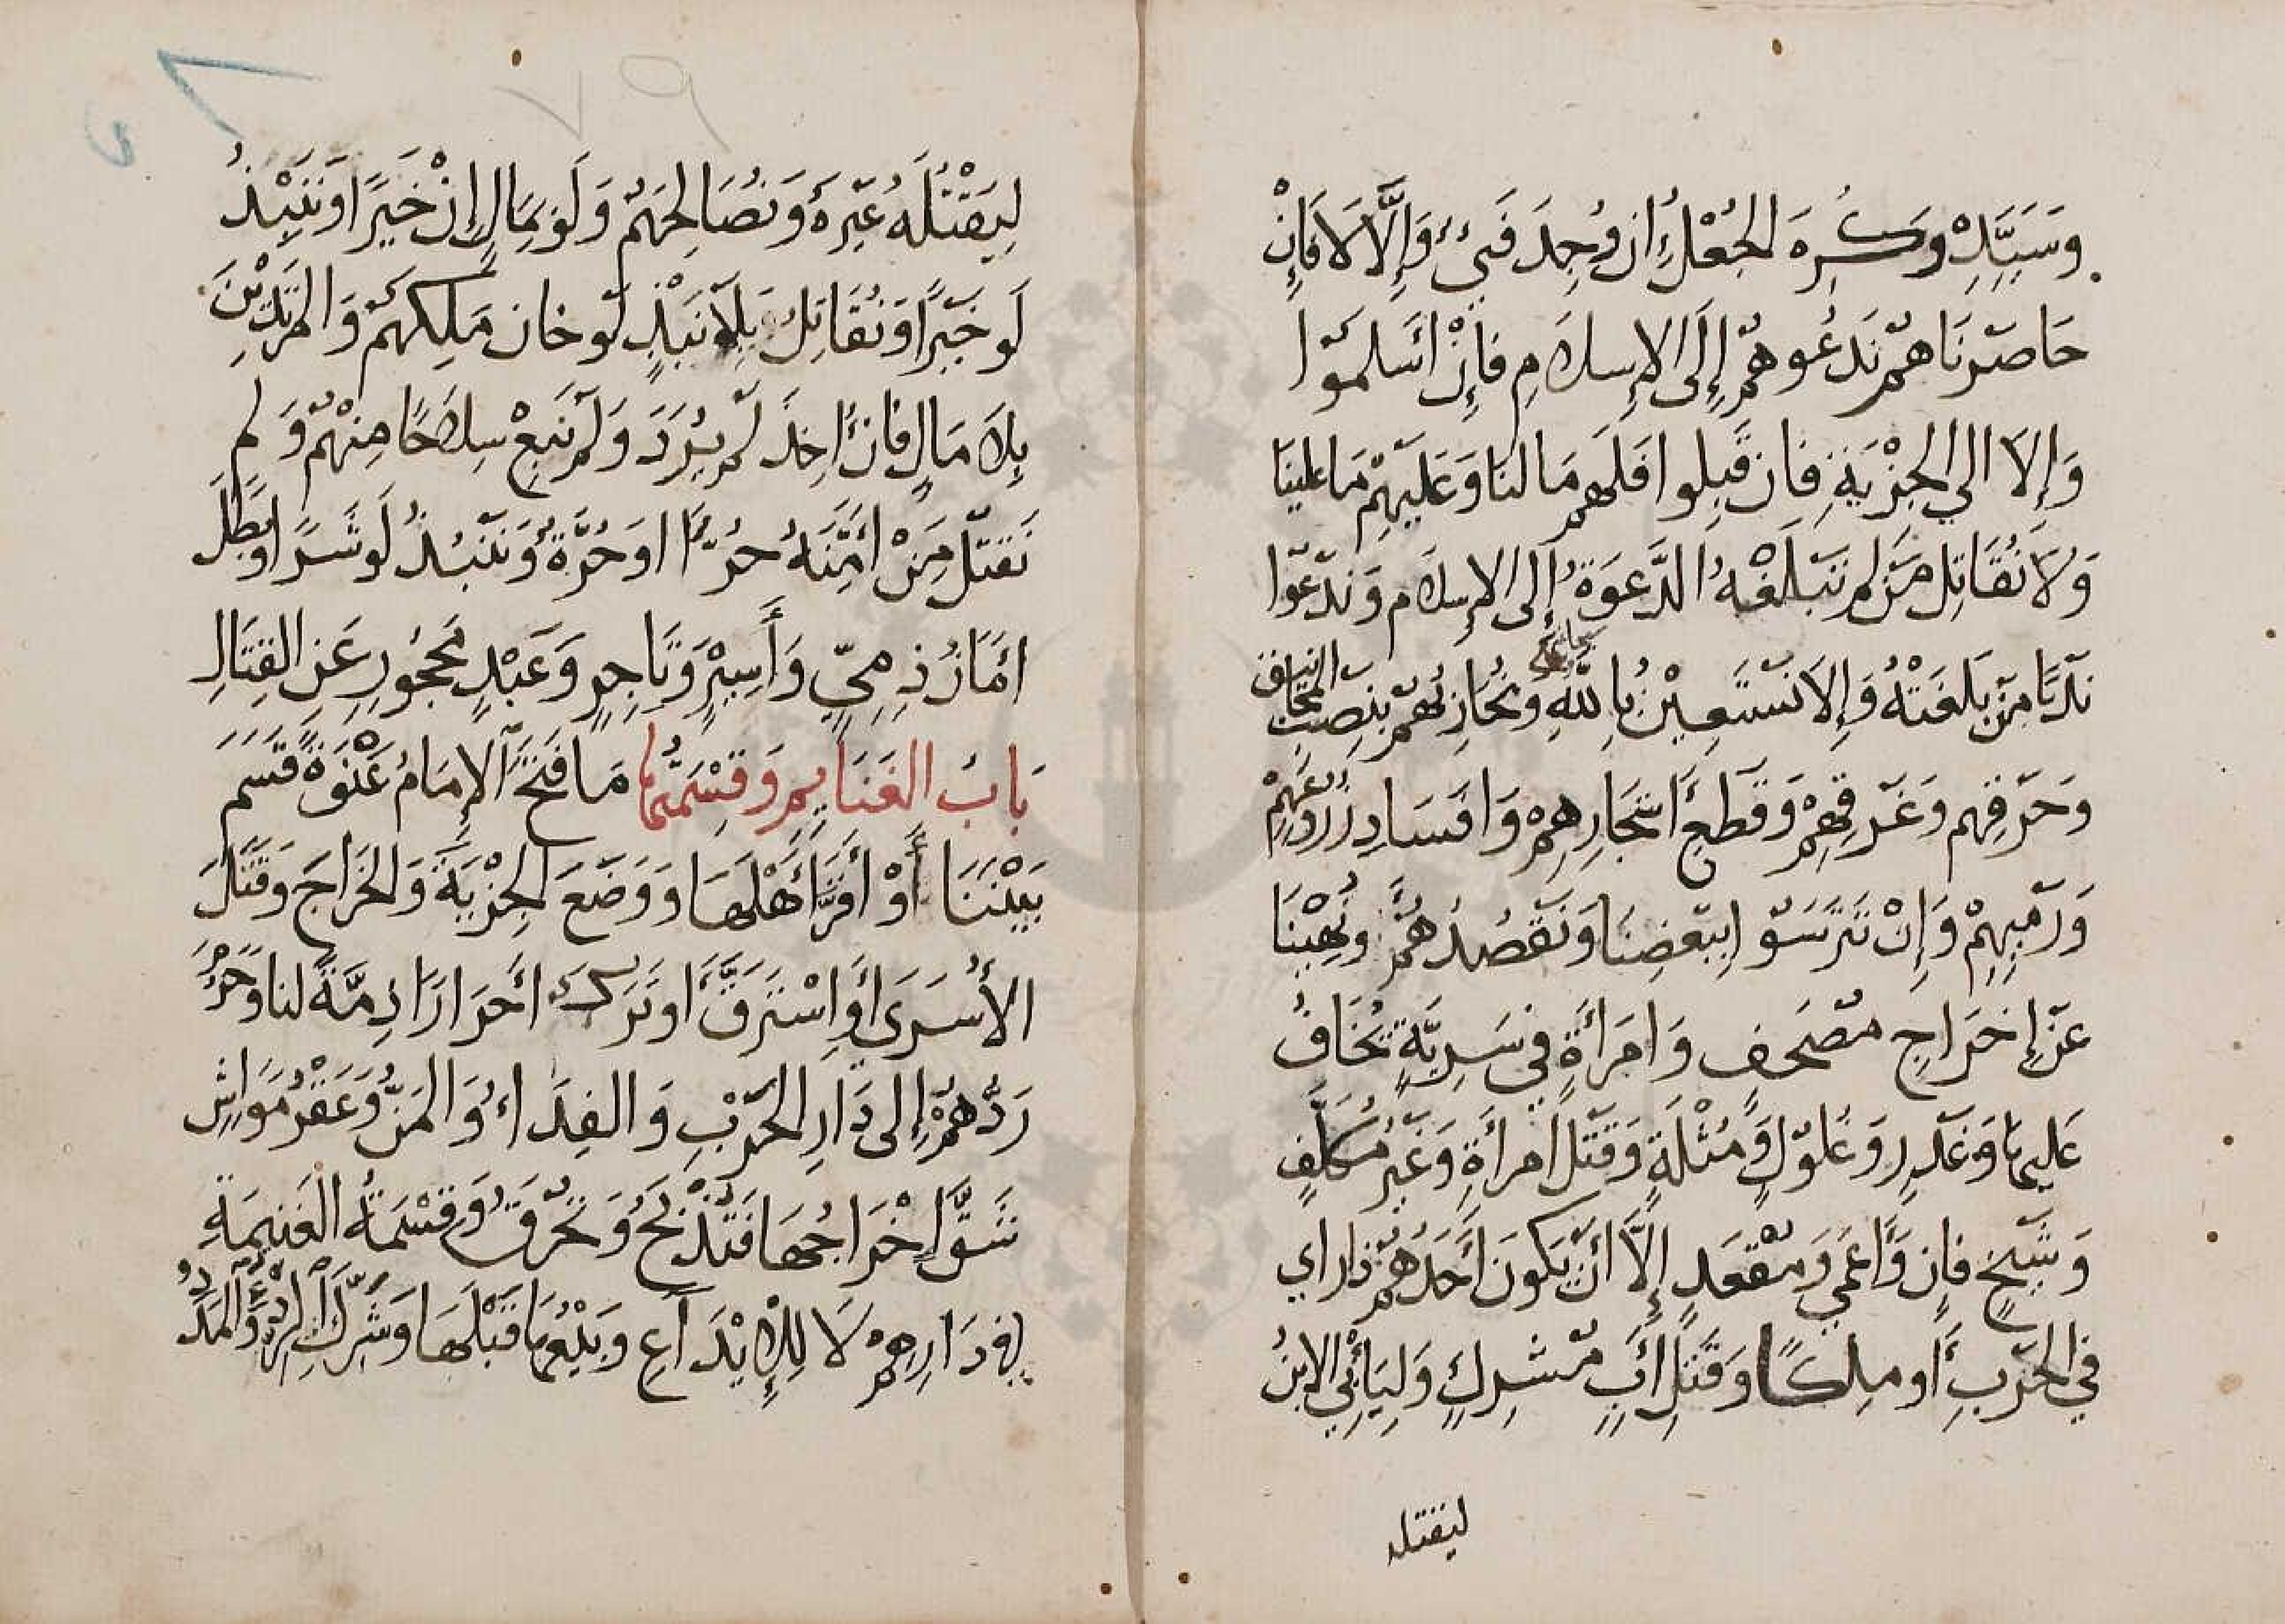 وَسَيِّدِهْ وَكُرِهَ الجُعْلُ إن وُجِدَ فَيْءٌ وَإِلَّا لَا فَإِنْ
حَاصَرْنَاهُمْ نَدْعُوهُمْ إِلَى الإِسلَامِ فَإِنْ أَسْلَمُوْا
وَإِلَا الي الجِزْيَةِ فان قَبِلوا فَلَهم مَا لنَا وَعَلَيْهِمْ مَا علينَا
وَلَا نُقَاتِل مَنْ لم تَبْلُغْهُ الدَّعوَةُ إِلى الإِسلَام وَنَدْعوا
نَدْبًا مَنْ بَلَغَتْهُ وَإِلَا نَسْتَعِيْنُ بِاللهِ وَنُحَارِبُهُمْ بِنَصْبِ المجانيق
وَحَرْقِهم وَغَرْقِهِمْ وَقَطْعِ أَشْجَارِهِمْ وَافسَادِ زُرُوعِهِمْ
وَرَمْيِهِمْ وَإِنْ تَتَرَّسُوْا بِبَعْضِنَا وَنَقْصُدُهُمْ وَنُهِيْنَا
عَنْ إِخرَاجِ مُصْحَفٍ وَامْرَأَةٍ في سَرِيَّةٍ يُخَافُ
عَلَيهِمَا وَغَدْرٍ وَغُلُوْلٍ وَمُثْلَةٍ وَقَتْل امْرأَةٍ وَغَيْرِ مُكَلَّفٍ
وَشَيْخٍ فانٍ وَأَعْمَي وَمُقْعَدٍ إِلَّا أَنْ يَكونَ أَحَدُهُمْ ذا راي
في الحَرْبِ أَو ملِكًا وَقَتْلِ أَبٍ مُشْرِكٍ وَلِيَأْبِي الابْنُ
ليقتله
لِيَقْتُلَهُ غَيْرهُ وَنُصَالِحُهُمْ وَلَو بِمَالٍ إِنْ خَيْرًا وَنَنْبِذُ
لَو خَيْرًا وَنُقَاتِلُ بِلَا نَبْذٍ لَو خان مَلِكهُمْ وَالمُرْتَدِّيْنَ
بِلَا مَالٍ فانْ أُخِذَ لَمْ يُرَدَّ وَلَمْ نَبِعْ سِلَاحًا مِنْهُمْ وَلم
نَقتُلْ مَنْ أَمَّنَهُ حُرٌّ او حُرَّةٌ وَنَنْبُذُ لَو شَرًّا وَبَطَلَ
أمَانُ ذِمِيٍّ وَأَسِيْرٍ وَتَاجِرٍ وَعَبْدٍ مَحْجُورٍ عَن القِتَالِ
بَابُ الغَنَايِمِ وَقِسْمَتُهَا مَا فَتَحَ الإِمَامُ عَنْوَةً قَسَمَ
بَيْنَنَا أَوْ أَقَرَّ أَهْلَهَا وَوَضَعَ الجِزْيَةَ وَالخَرَاجَ وَقَتَلَ
الأَسْرَى أَو اسْتَرَقَّ او تَرَكَ أَحرَارًا ذِمَّةً لنا وَحَرُمَ
رَدُّهُمْ إِلى دَارِ الحَرْبِ وَالفِدَاءُ وَالمَنُّ وَعَقْرُ مَوَاشٍ
شَقَّ إِخْرَاجُهَا فَتُذْبَحُ وَتُحْرَقُ وَقِسْمَةُ الغَنِيمَةِ
في دَارِهِمْ لَا لِلْإِيْدَاعِ وَبَيْعُهَا قَبْلَهَا وَشَرِكَ الرِّدْءُ وَالمَدَدُ